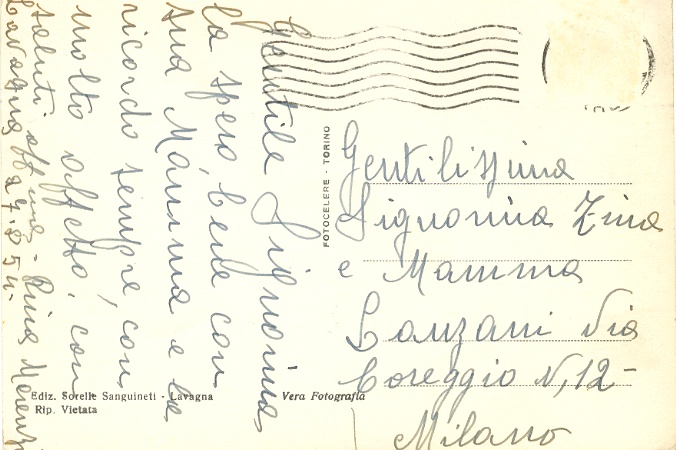 Gentile Signorina,
la spero bene con
sua Mamma e la
ricordo sempre, con
molto affetto, con
saluti affmi - Rina
Lavagna 27.8.54.
FOTOCELERE - TORINO
Gentilissima
Signorina Zina
e Mamma
Lanzani Via
Coreggio N, 12 -
Milano
Ediz. Sorelle Sanguineti - Lavagna
Rip. Vietata
Vera Fotografia